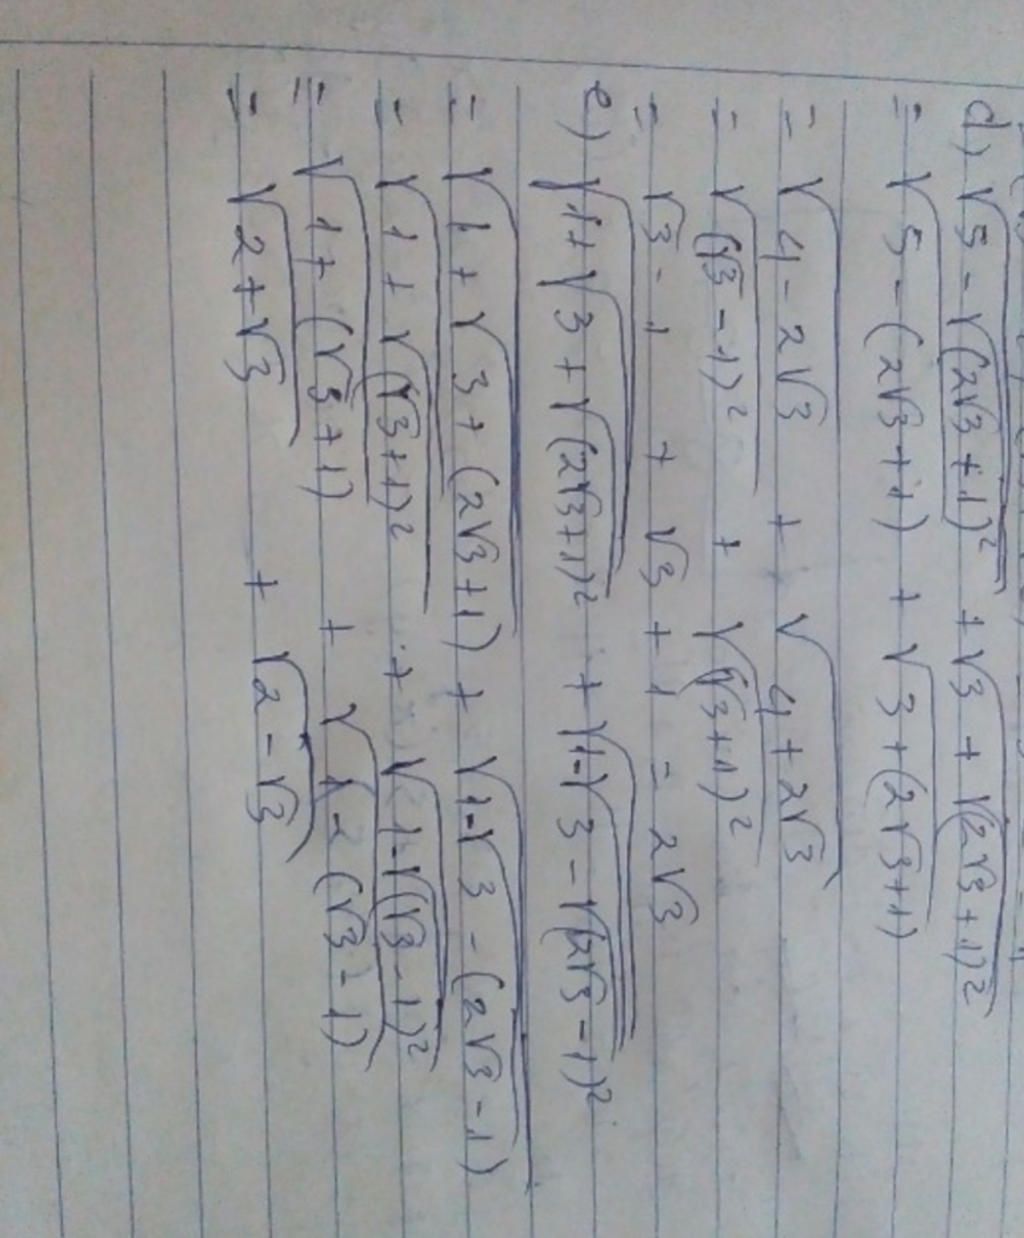 d) √(5 - √(2√3 + 1)²) + √(3 + √(2√3 + 1)²)
= √(5 - (2√3 + 1)) + √(3 + (2√3 + 1))
= √(4 - 2√3) + √(4 + 2√3)
= √(√3 - 1)² + √(√3 + 1)²
= √3 - 1 + √3 + 1 = 2√3
e) √(1 + √(3 + √(2√3 + 1)²)) + √(1 - √(3 - √(2√3 - 1)²))
= √(1 + √(3 + (2√3 + 1))) + √(1 - √(3 - (2√3 - 1)))
= √(1 + √(√3 + 1)²) + √(1 - √(√3 - 1)²)
= √(1 + (√3 + 1)) + √(1 - (√3 - 1))
= √(2 + √3) + √(2 - √3)